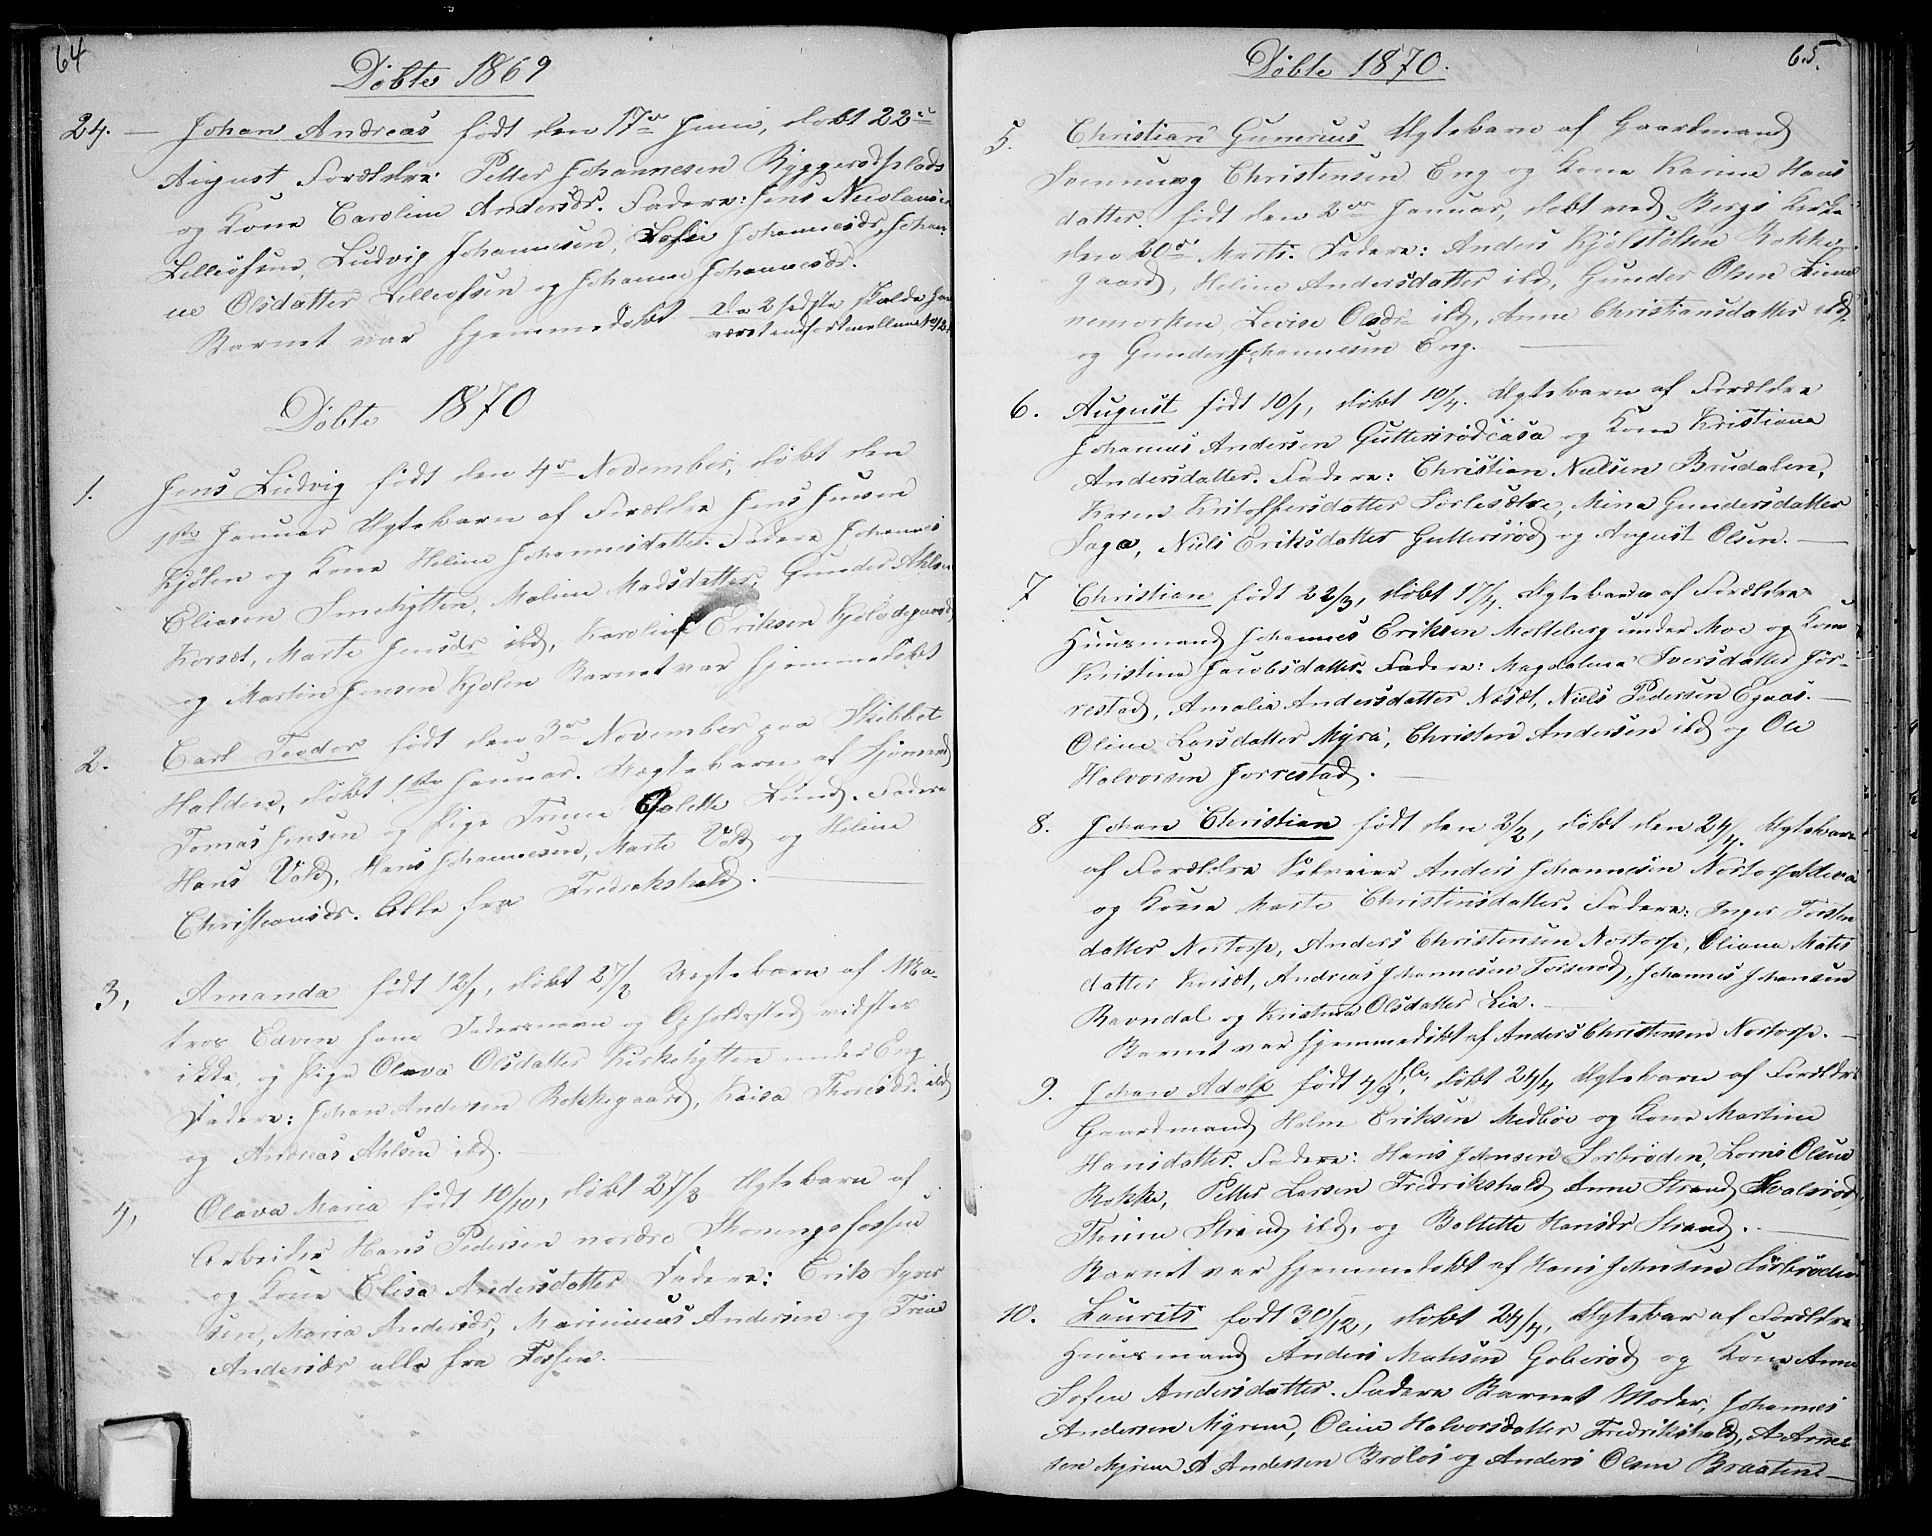 64
Døbte 1869
24. — Johan Andreas født den 17de Juni, døbt 22de
August Forældre: Petter Johannesen Byggerødplads
og Kone Caroline Andersdr. Faddere: Jens Nicolausen
Lilleøfsen, Ludvig Johannesen, Sofie Johannesdr, Johan-
ne Olsdatter Lilleofsen og Johanne Johannesdr.
Barnet var hjemmedøbt
Døbte 1870
1. Jens Ludvig født den 4de November, døbt den
1ste Januar Ægtebarn af Forældre Jens Jensen
Kjølen og Kone Helene Johannesdatter. Faddere Johannes
Eliasen Smehytten, Maline Madsdatter, Gunder Ahlsen
Korsæt, Marte Jensdr ibd, Karoline Eriksen Kjølødegaard
og Martin Jensen Kjølen Barnet var hjemmedøbt
2. Carl Teodor født den 3de November paa Skibbet
Halden, døbt 1ste Januar. Uægtebarn af Sjømand
Tomas Jensen og Pige Trine Golette Lund. Faddere
Hans Vold, Hans Johannesen, Marte Vold og Heline
Christiansdr. Alle fra Fredrikshald.
3, Amanda født 12/1, døbt 27/2 Uægtebarn af Ma-
tros Edvin hans Fadersnavn og Opholdssted vidstes
ikke, og Pige Olava Olsdatter Kirkehytten under Eng
Faddere: Johan Andersen Rokkegaard, Kaisa Thoresdr. ibd
og Andreas Ahlsen ibd.
4, Olava Maria født 10/10, døbt 27/3 Ægtebarn af
Arbeider Hans Pedersen nordre Skoningsfossen
og Kone Elisa Andersdatter Faddere: Erik Syver
sen, Maria Andersdr, Marinius Andersen og Trine
Andersdr alle fra Fossen.
65.
Døbte 1870.
5. Christian Gunerius Ægtebarn af Gaardmand
Svennung Christensen Eng og Kone Karine Hans
datter født den 2den Januar, døbt ved Bergs Kirke
den 20de Marts. Faddere: Anders Kjølstølsen Rokke-
gaard, Heline Andersdatter ibd, Gunder Olsen Linne
nemorken, Lovise Olsdr ibd, Anne Christiansdatter ibd,
og Gunder Johannesen Eng.
6. August født 10/1, døbt 10/4. Ægtebarn af Forældre
Johannes Andersen Guttersrødcasa og Kone Kristiana
Andersdatter. Faddere: Christian Nielsen Brudalen,
Karen Kristoffersdatter Sørlesætre, Mina Gundersdatter
Saga, Niels Eriksdatter Guttersrød og August Olsen.
7 Christian født 22/3, døbt 17/4. Ægtebarn af Forældre
Huusmand Johannes Eriksen Molteberg under Moe og Kone
Kristine Jacobsdatter. Faddere: Magdalena Iversdatter Jør-
restad, Amalia Andersdatter Næsæt, Niels Pedersen Egaas.
Oline Larsdatter Myra, Christen Andersen ibd og Ole
Halvorsen Jorrestad.
8. Johan Christian født den 2/2, døbt den 24/4. Ægtebarn
af Forældre Selveier Anders Johannesen Nortorpødeva
og Kone Marte Christensdatter. Faddere: Inger Torsten
datter Nortorp, Anders Christensen Nortorp, Oliana Mates
datter Korsæt, Andreas Johannesen Torserød, Johannes Johansen
Ravndal og Kristina Olsdatter Lia.
Barnet var hjemmedøbt af Anders Christensen Nortorp.
9. Johan Adolf født 4/9, døbt 24/4 Ægtebarn af Forældre
Gaardmand Holm Eriksen Medbøe og Kone Martine
Hansdatter. Faddere: Hans Johnsen Sørbrøden, Lorns Olsen
Rokke, Petter Larsen Fredrikshald Anne Strand Hvalsrød,
Thrine Strand ibd, og Boltette Hansdr Strand.
Barnet var hjemmedøbt af Hans Johnsen Sørbrøden
10. Laurits født 30/12, døbt 24/4, Ægtebar af Forældre
Huusmand Anders Matesen Goberød og Kone Anne
Sofea Andersdatter. Faddere Barnet Moder, Johannes
Andersen Myrene, Oline Halvorsdatter Fredrikshald, A Arne
sen Myrene A Anderssen Brøløs og Anders Olsen Braaten